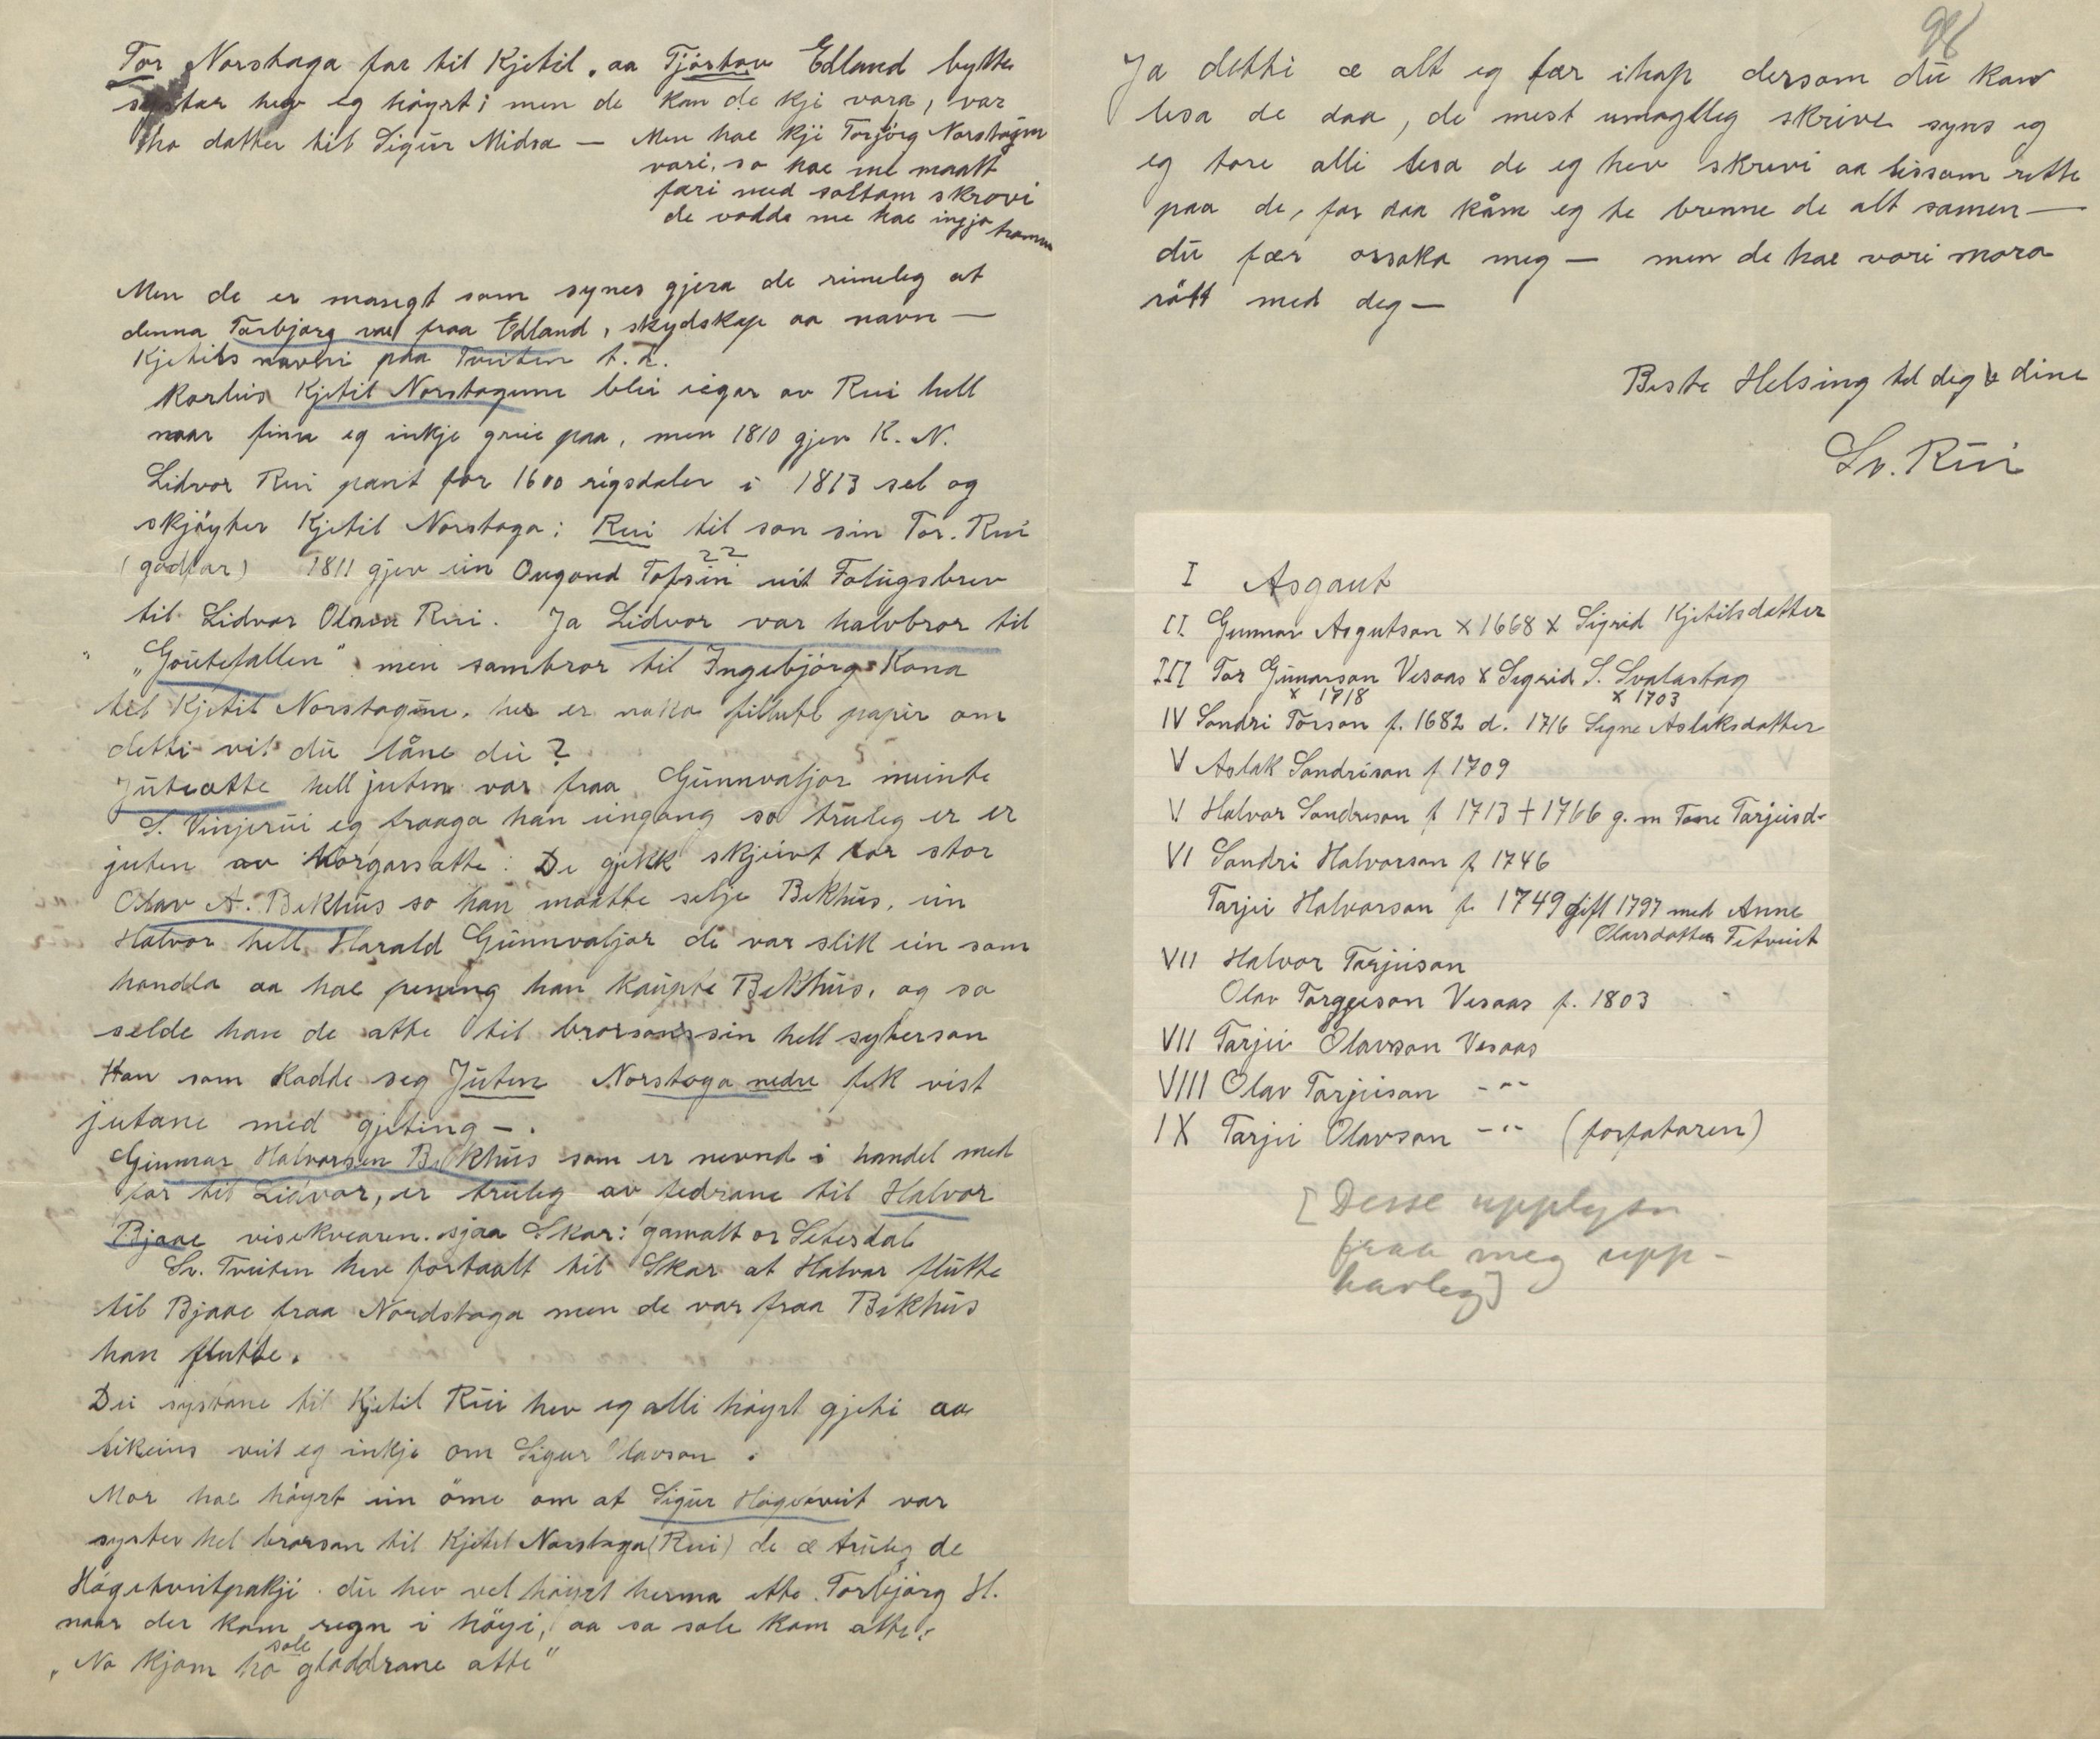 Tor Norstaga far til Kjetil, aa Tjöstav Edland bytte
systar hev eg höyrt; men de kan de kji vara, var
ho datter til Sigur Midsa — Men hae kji Torjörg Norstogun
vari, so hae me maatt
fari med soltam skrovi
de vadde me hae ingjo
Men de er mangt som synes gjera de rimeleg at
denna Torbjørg var fraa Edland, skydskap aa navn —
Kjetils navni paa Tveiten t.d.
Korleis Kjetil Norstogune blei eigar av Rui hell
naar finn eg inkje greie paa, men 1810 gjev K. N.
Lidvor Rui pant for 1600 rigsdaler i 1813 sel og
skjöyter Kjetil Norstoga: Rui til son sin Tor. Rui
(godfar) 1811 gjev ein Ougond Tofsin eit Folugsbrev
til Lidvor Olsen Rui. Ja Lidvor var halvbror til
„Goutefallen" men sambror til Ingebjörg Kona
til Kjetil Norstogune. her er noko fillut papir om
detti vil du låne du?
Juteætte hell juten var fraa Gunnvaljor meinte
S. Vinjerui eg fraaga han eingang so truleg er er
juten av Norgarsætte: De gjekk skjeivt for stor
Olav A. Bekhus so han maatte selje Bekhus, ein
Halvor hell Harald Gunnvaljor de var slik ein som
handla aa hae pening han kaupte Bekhus, og so
selde han de atte til brorson sin hell syterson
Han som kadde seg Juten Norstoga nedre fek vist
jutane med gjeting —.
Gunnar Halvorsen Bekhus som er nevnd i handel med
far til Lidvor, er truleg av fedrane til Halvor
Bjaae visekvearen. sjaa Skar: gamalt or Setesdal
Sv. Tveiten hev fortaalt til Skar at Halvor flutte
til Bjaae fraa Nordstoga men de var fraa Bekhus
han flutte.
Dei systane til Kjetil Rui hev eg alli höyrt gjeti aa
likeins veit eg inkje om Sigur Olavson.
Mor hae höyrt ein öme om at Sigur Högetveit var
syster hel brorson til Kjetil Norstoga (Rui) de æ truleg de
Högetveitpakji. du hev vel höyrt herma ette Torbjörg H.
naar der kom regn i höyi, aa so sole kom atte:
sole
„No kjem ho gloddrane atte"
98
Ja detti æ alt eg fær ihop dersom du kan
lesa de daa, de mest umoglleg skrive syns eg
eg tore alli lesa de eg hev skrevi aa lissom rette
paa de, for daa kåm eg te brenne de alt samen —
du fær orsaka meg — men de hae vori mora
rått med deg —
Beste Helsing til deg & dine
Sv. Rui
I Asgaut
II Gunnar Asgutson x 1668 x Sigrid Kjetilsdatter
III Tor Gunarson Vesaas x Sigrid S. Svalastog
x 1718 x 1703
IV Sondri Torson f. 1682 d. 1716 Signe Aslaksdatter
V Aslak Sondrison f 1709
V Halvor Sondreson f 1713 + 1766 g. m Tone Tarjeisd-
VI Sondri Halvorson f 1746
Tarjei Halvorson f. 1749 gift 1797 med Anne
Olavsdatter Tetveit
VII Halvor Tarjeison
Olav Torggeison Vesaas f. 1803
VII Tarjei Olavson Vesaas
VIII Olav Tarjeison -"-
IX Tarjei Olavson -"- (forfataren)
[Desse upplysn
fraa meg upp-
havleg]